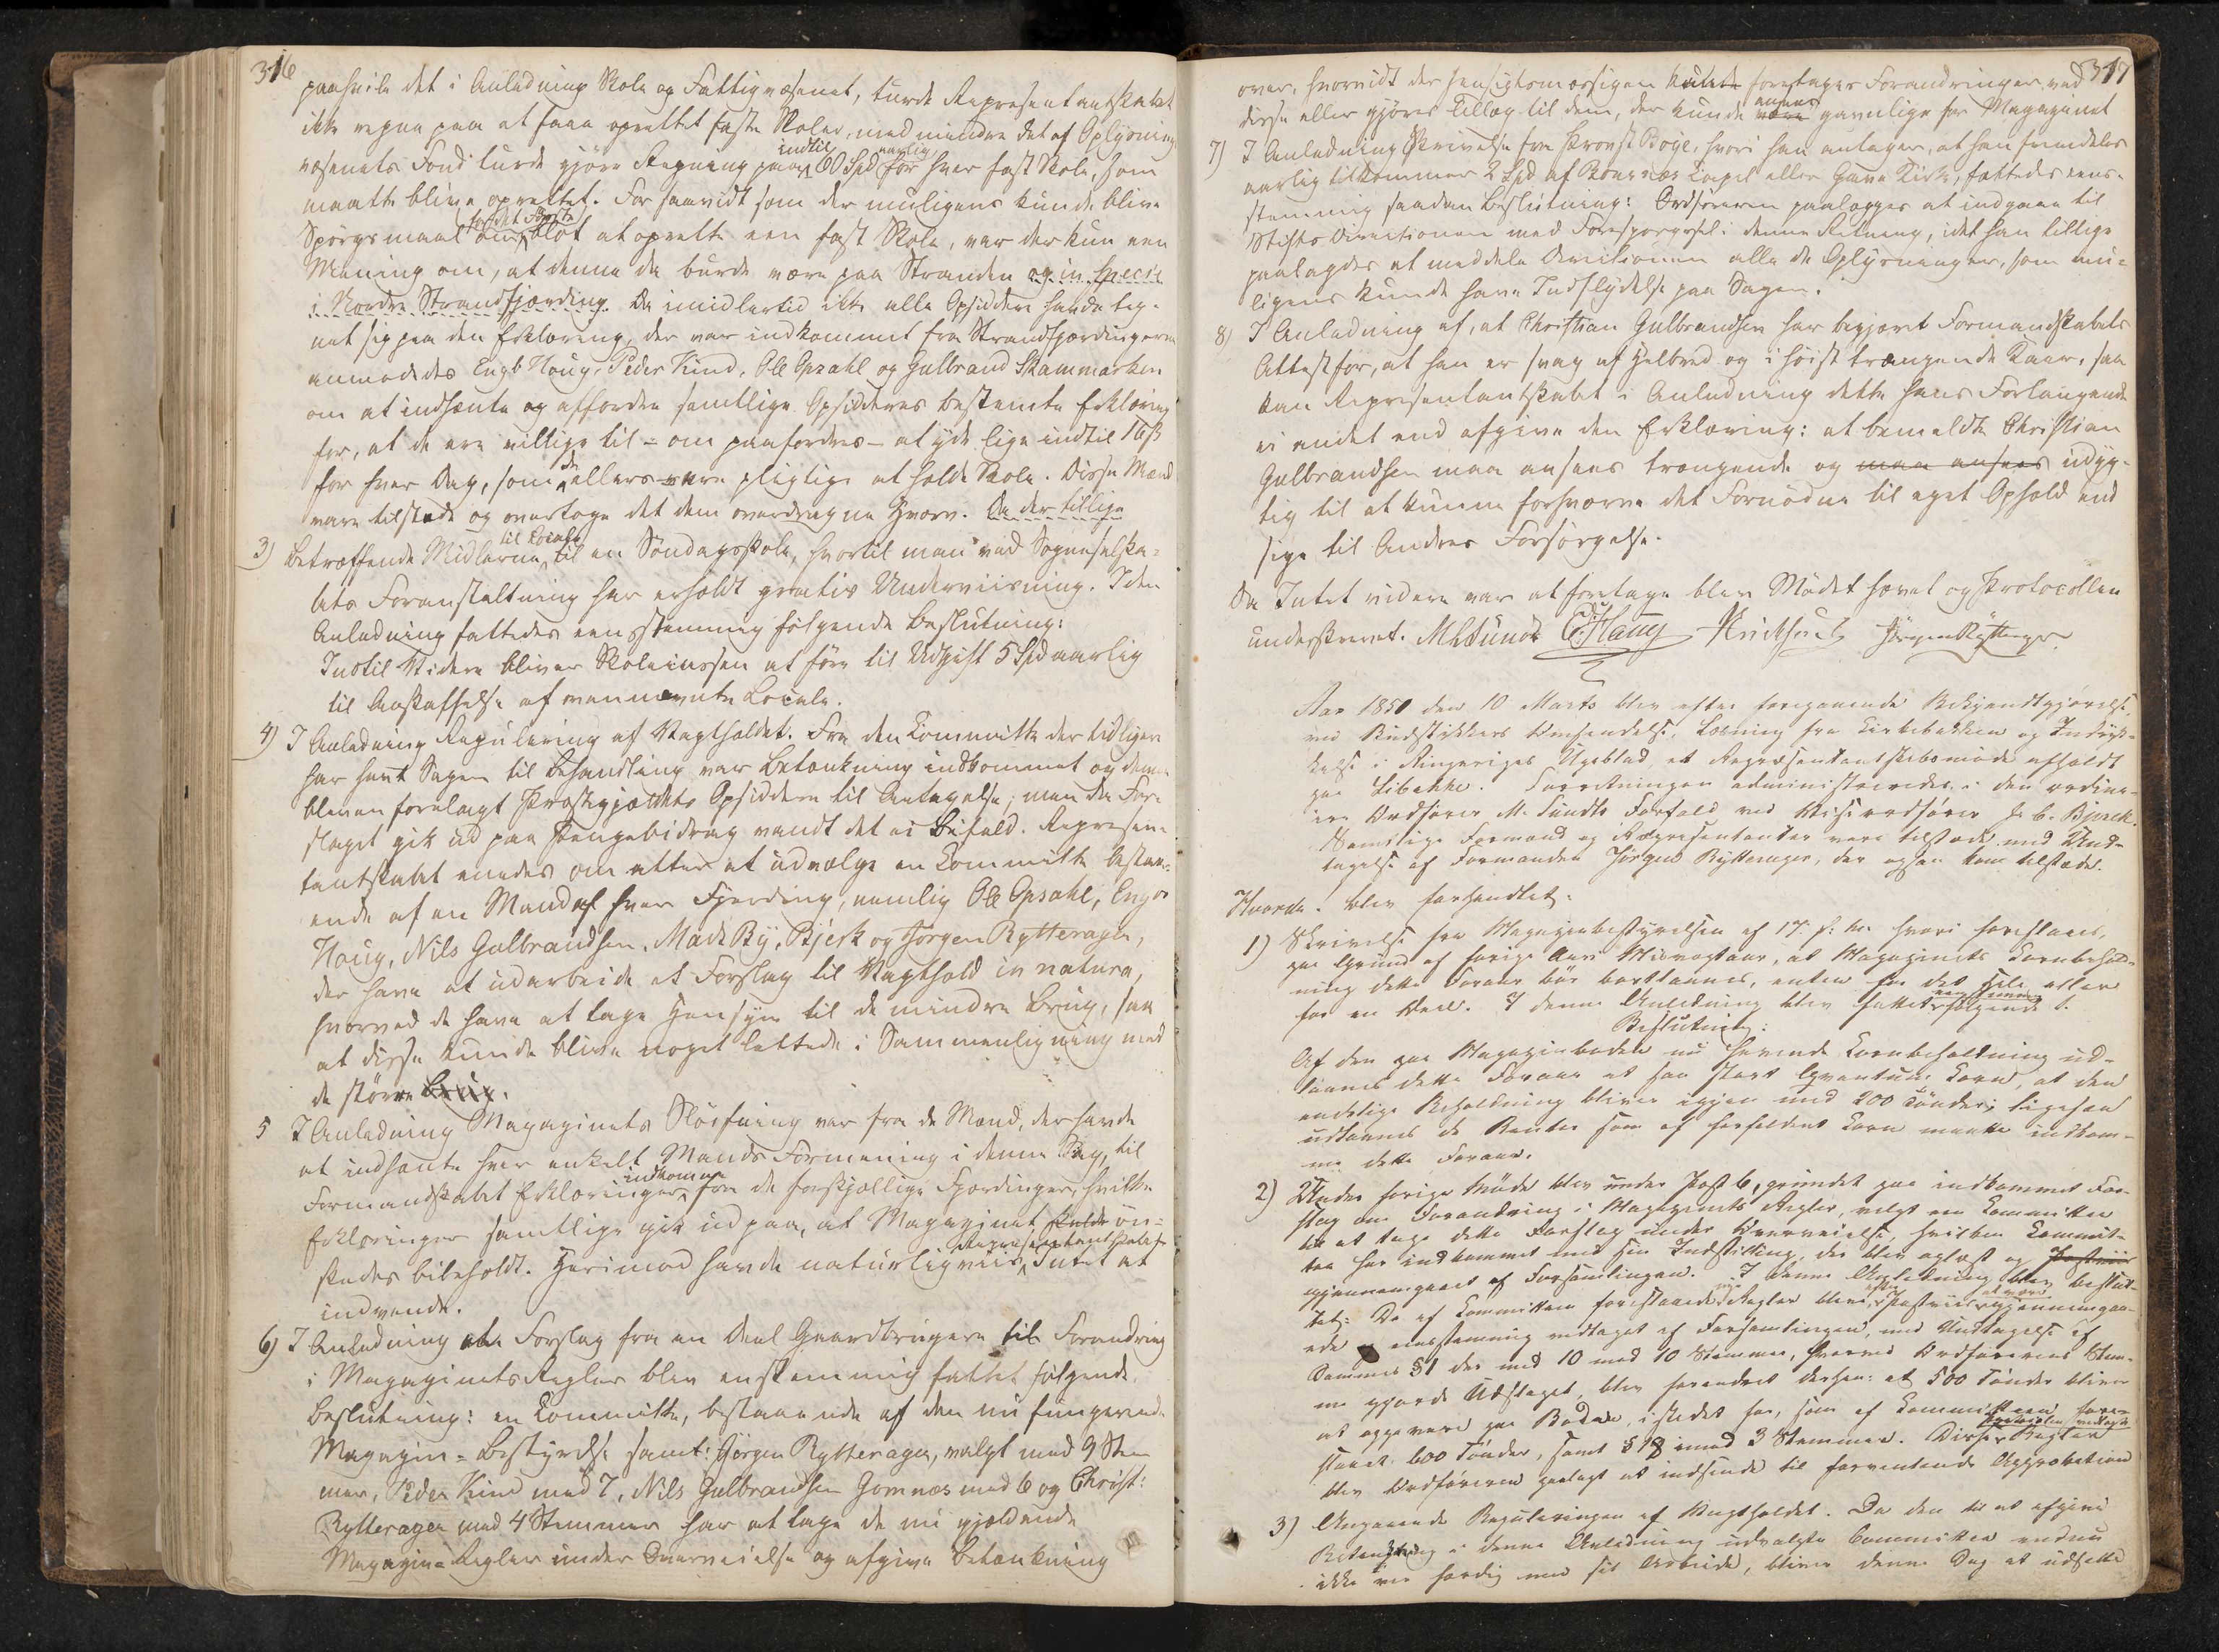 316
paahvile det i Anledning Skole og Fattigvæsenet, turde Repræsentantskabet
ikke regne paa at faae oprettet faste Skoler, med mindre det af Oplysnings
væsenets Fond turde gjøre Regning paa indtil 60 Spd aarlig for hver fast Skole, som
maatte blive oprettet. For saavidt som der muligens kunde blive
Spørgsmaal om for det Første blot at oprette een fast Skole, var der kun een
Mening om, at denne da burde være paa Stranden og in specie
i Nordre Strandfjærding. Da imidlertid ikke alle Opsiddere havde teg-
net sig paa den Erklæring, der var indkommet fra Strandfjærdingerne
anmodedes Engb Houg, Peder Kind, Ole Opsahl og Gulbrand Skammarken
om at indhente og affordre samtlige Opsidderes bestemte Erklæring
for, at de ere villige til – om paafordres – at yde lige indtil 16 ß
for hver Dag, som de ellers vare pligtige at holde Skole. Disse Mænd
vare tilstede og overtoge det dem overdragne Hverv. Da der tillige
3) Betræffende Midlerne til Locale til en Søndagsskole, hvortil man ved Sogneselska-
bets Foranstaltning har erholdt gratis Underviisning. I den
Anledning fattedes eensstemmig følgende Beslutning:
Indtil Videre bliver Skolecassen at føre til Udgift 5 Spd aarlig
til Anskaffelse af ovennævnte Locale.
4) I Anledning Regulering af Vagtholdet. Fra den Committe der tidligere
har havt Sagen til Behandling var Betænkning indkommet og denne
bleven forelagt Præstegjældets Opsiddere til Antagelse; men da For-
slaget gik ud paa Pengebidrag vandt det ei Bifald. Repræsen-
tantskabet enedes om atter at udvælge en Committe bestaa-
ende af en Mand af hver Fjerding, nemlig Ole Opsahl, Engbr
Houg, Nils Gulbrandsen, Mads By, Bjerk og Jørgen Rytterager,
der have at udarbeide et Forslag til Vagthold in natura,
hvorved de have at tage Hensyn til de mindre Brug, saa
at disse kunde blive noget lettede i Sammenligning med
de større Brug.
5 I Anledning Magazinets Sløifning var fra de Mænd, der havde
at indhente hver enkelt Mands Formening i denne Sag, til
Formandskabet Erklæringer indkomne fra de forskjællige Fjerdinger, hvilke
Erklæringer samtlige gik ud paa, at Magazinet skulde øn-
skedes bibeholdt. Herimod havde naturligviis Repræsentantskabet Intet at
indvende.
6) I Anledning et Forslag fra en Deel Gaardbrugere til Forandring
i Magazinets Regler blev enstemmig fattet følgende
Beslutning: en Committe, bestaaende af den nu fungerende
Magazin-Bestyrelse samt: Jørgen Rytterager, valgt med 9 Stem
mer, Peder Kind med 7, Nils Gulbrandsen Gomnæs med 6 og Christ:
Rytterager med 4 Stemmer har at tage de nu gjældende
Magazins Regler under Overveielse og afgive Betænkning
317
over, hvorvidt der hensigtsmæssigen kunde foretages Forandringer ved
disse eller gjøres Tillæg til dem, der kunde ansees være gavnlige for Magazinet
7) I Anledning Skrivelse fra Provst Boye, hvori han antager, at han fremdeles
aarlig tilkommer 2 Spd af Kapel eller Kirke, fattedes eens-
stemmig saadan Beslutning: Ordføreren paalægges at indgaae til
Stifts Directionen med Forespørgsel i denne Retning, idet han tillige
paalagdes at meddele Directionen alle de Oplysninger, som mu-
ligens kunde have Indflydelse paa Sagen.
8) I Anledning af, at Christian Gulbrandsen har begjæret Formandskabets
Attest for, at han er svag af Helbred og i høist trængende Kaar, saa
kan Repræsentantskabet i Anledning dette hans Forlangende
ei andet end afgive den Erklæring: at bemeldte Christian
Gulbrandsen maa ansees trængende og maa ansees udyg-
tig til at kunne forhverve det Fornødne til eget Ophold end
sige til Andres Forsørgelse.
Da Intet videre var at foretage blev Mødet hævet og Protocollen
underskrevet. M Sundt E. Houg Jørgen Rytterager
Aar 1850 den 10 Marts blev efter foregaaende Bekjendtgjørelse,
ved Budstikkers Omsendelse, Læsning fra Kirkebakken og Indryk-
kelse i Ringeriges Ugeblad, et Repræsentantskabsmøde afholdt
paa Libakke. Forretningen administreredes i den ordinæ-
re Ordfører M. Sundts Forfald ved Viceordfører J. C. Bjerck.
Samtlige Formænd og Repræsentanter vare tilstæde med Und-
tagelse af Formanden Jørgen Rytterager, der ogsaa kom tilstæde.
Hvorda blev forhandlet:
1) Skrivelse fra Magazinbestyrelsen af 17. f. M. hvori foreslaaes,
paa Grund af forige Aars Misvextaar, at Magazinets Kornbehold-
ning dette Foraar bør bortlaanes, enten for det Hele eller
for en Deel. I denne Anledning blev fattet eenstemmig følgende
Beslutning:
Af den paa Magazinboden nu havende Kornbeholdning ud-
laanes dette Foraar et saa stort Qvantum Korn, at den
endelige Beholdning bliver igjen med 200 Tønder; ligesaa
udlaanes de Renter som af forfaldent Korn maatte indkom-
me dette Foraar.
2) Under forige Møde blev under Post 6, grundet paa indkommet For-
slag om Forandring i Magazinets Regler, valgt en Committee
til at tage dette Forslag under Overveielse, hvilken Commit-
tee har indkommet med sin Indstilling, der blev oplæst og Postviis
gjennemgaaet af Forsamlingen. I denne Anledning blev beslut-
tet: De af Committeen foreslaaede nye Regler bleve efter Postviis at være gjennemgaa-
ede eenstemmig vedtaget af Forsamlingen, med Undtagelse af
Sammes § 1 der med 10 mod 10 Stemmer, hvorved Ordførerens Stem-
me gjorde Udslaget, blev forandret derhen: at 500 Tønder bliver
at oppevare paa Boden, istedet for, som af Committeen fore-
slaaet 600 Tønder, samt § 18 imod 3 Stemmer. Disse saaledes vedtagne Regler
blev Ordføreren paalagt at indsende til forventende Approbation
3) Angaaende Reguleringen af Vagtholdet. Da den til at afgive
Betænkning i denne Anledning udvalgte Committee endnu
ikke var færdig med sit Arbeide, bliver denne Sag at udsætte